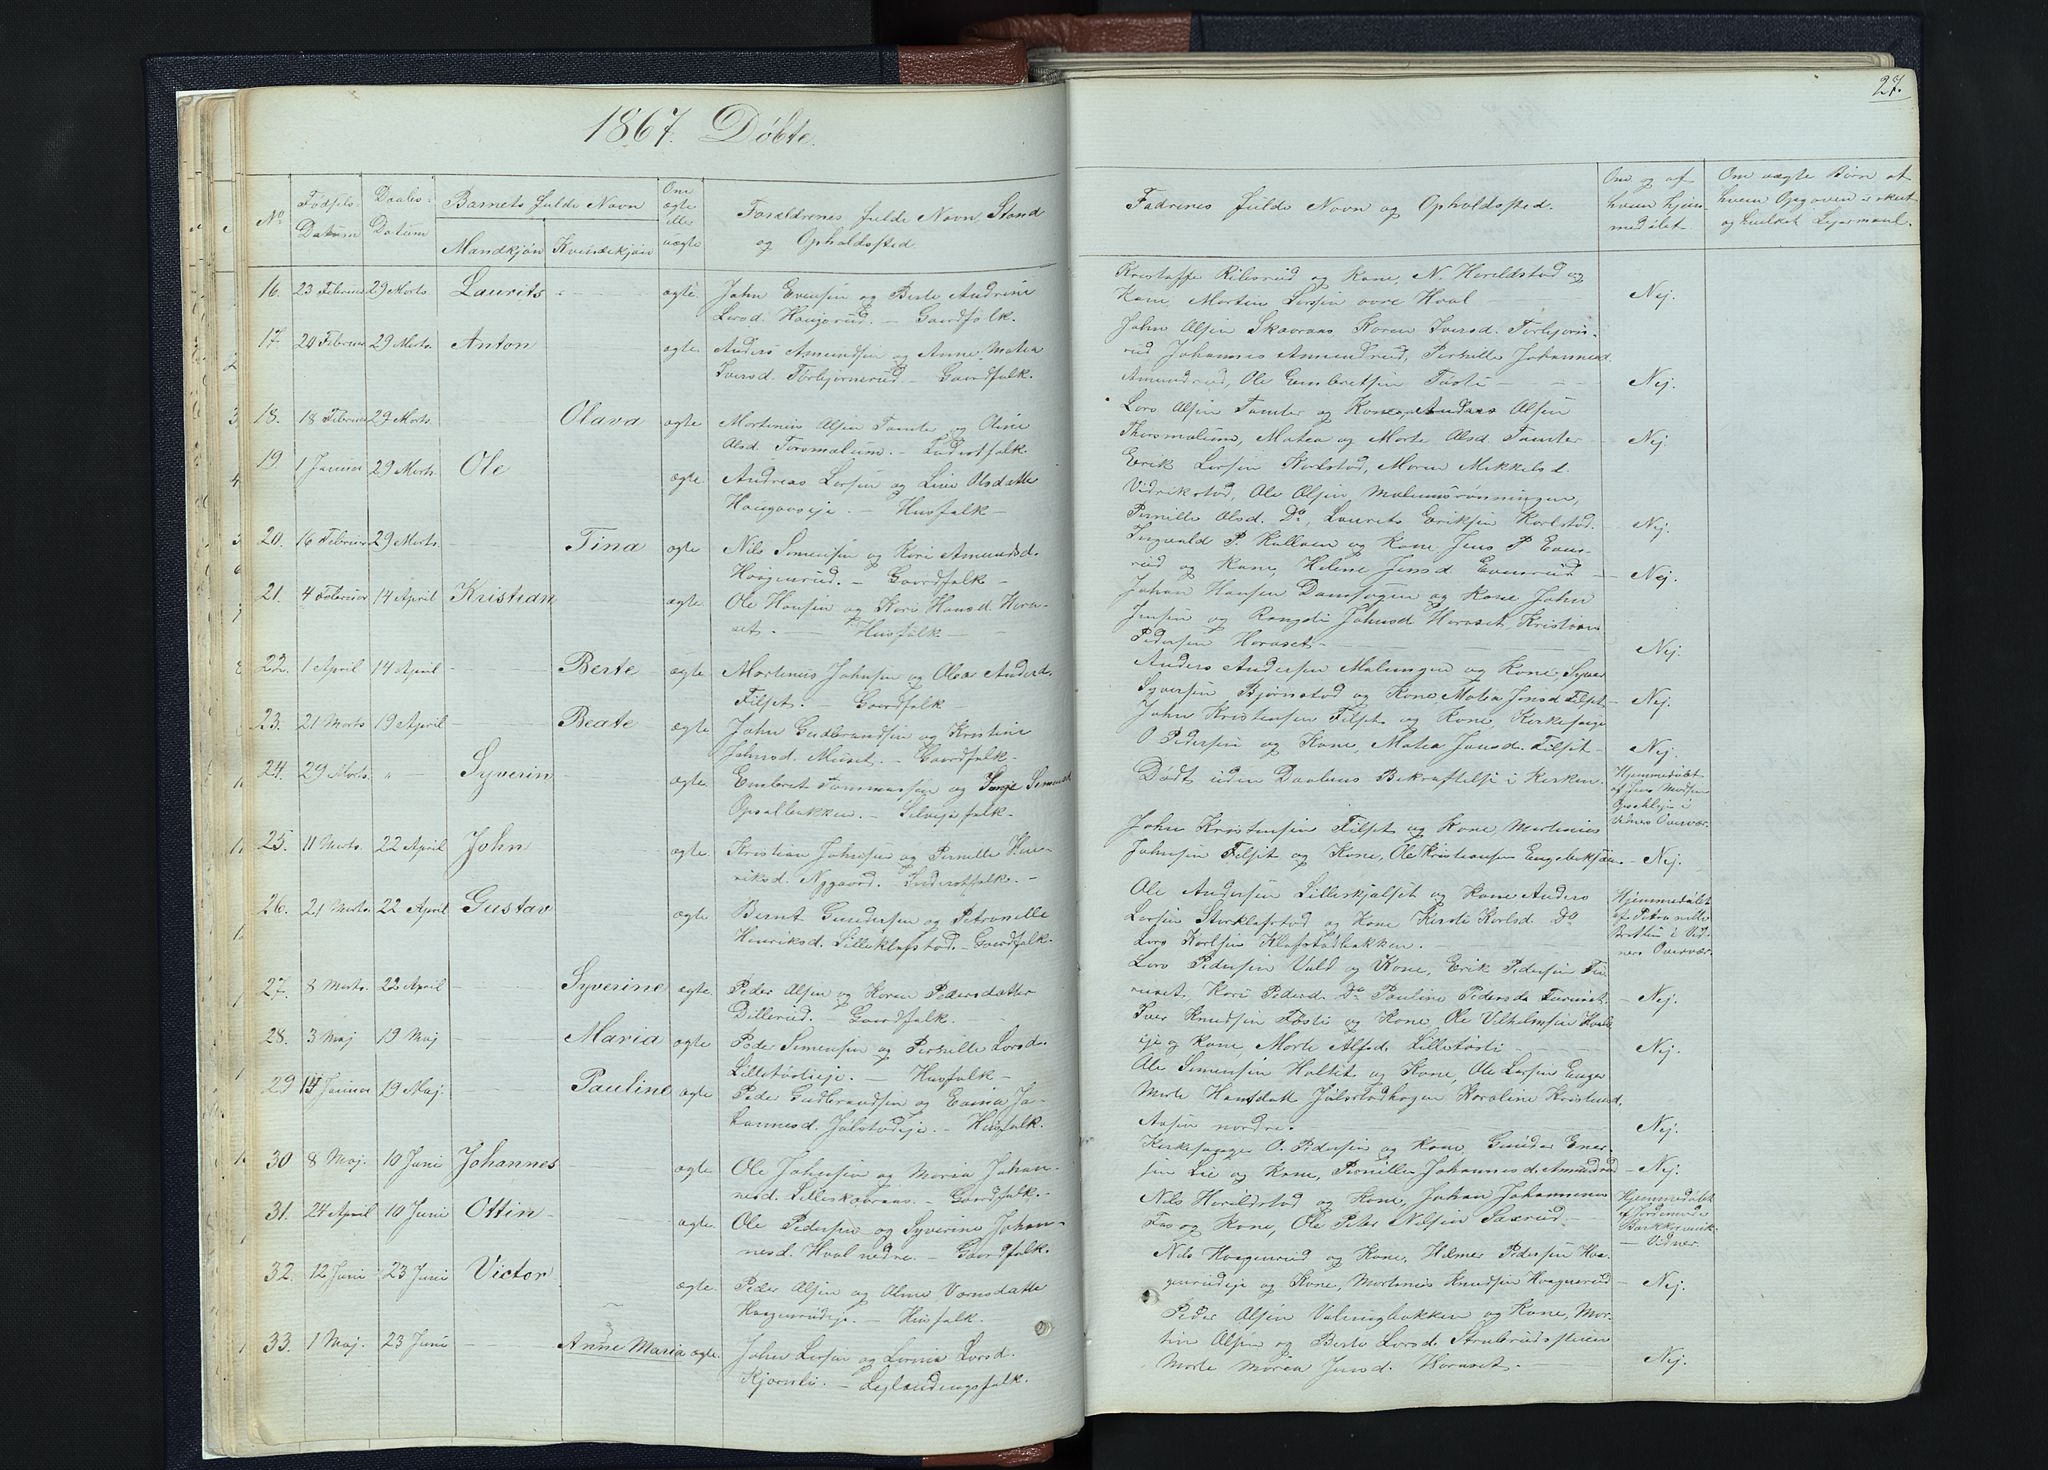 1867. Döbte.
27.
No
Födsels-
Datum
Daabs-
Datum
Barnets fulde Navn
Mandkjön
Kvindekjön
Om
ægte
eller
uægte
Forældrenes fulde Navn, Stand
og Opholdssted.
Faderenes fulde Navn og Opholdssted.
Om og af
hvem hjem-
medöbt.
Om uægte Börn af
hvem Opgaven er skeet
og hvilket Leiermaal.
16. 23 Februar 29 Marts Laurits ægte John Evensen og Berte Andrine
Larsd. Haugerud. — Gaardfolk.
Kristoffe Ribsrud og Kone, N. Hereldstad og
Kone, Martin Larssen övre Hval
Nej.
17. 20 Februar 29 Marts. Anton ægte Anders Amundsen og Anne Matea
Iversd. Torbjörnsrud — Gaardfolk.
John Olsen Skaaraas Karen Iversd. Torbjörns-
rud Johannes Amundrud, Pernille Johannesd
Amundrud, Ole Embretsen Tosti
Nej.
18. 18 Februar 29 Marts. Olava ægte Martinius Olsen Tomter og Oline
Olsd. Toromalum. — Inderstfolk.
Lars Olsen Tomter og Kone, Anders Olsen
Thoromalum, Matea og Marte Olsd. Tomter
Nej
19. 1 Januar 29 Marts. Ole ægte Andreas Larsen og Line Olsdatter
Haugaaseje. — Husfolk —
Erik Larsen Karlstad, Maren Mikkelsd.
Vidrikstad, Ole Olsen Malumsrönningen,
Pernille Olsd. Do, Laurits Eriksen Karlstad.
Nej.
20. 16 Februar 29 Marts. Tina ægte Nils Simensen og Kari Amundsd.
Haagenrud. — Gaardfolk —
Ingvald P. Kulluen og Kone, Jens P. Even-
rud og Kone, Helene Jensd Evenrud
Nej.
21. 4 Februar 14 April Kristian ægte Ole Hansen og Kari Hansd. Hora-
set. — Husfolk —
Johan Hansen Damhagen og Kone John
Jensen og Rangdi Johnsd Horaset, Kristian
Pedersen Horaset.
Nej.
22. 1 April 14 April Berte ægte Martinius Johnsen og Olea Andersd.
Filset. — Gaardfolk —
Anders Andersen Malungen og Kone, Syver
Syversen Björnstad og Kone Matea Jonsd Filset
Nej.
23. 21 Marts 19 April Beate ægte John Gudbrandsen og Kristine
Johnsd. Muset. — Gaardfolk —
John Kristensen Filset og Kone, Kirkesanger
O Pedersen og Kone, Matea Jonsd. Filset
Nej
24. 29 Marts. „ Syverin ægte Embret Tommassen og Simensd
Opsalbakken. — Selvejefolk —
Dödt uden Daabens Bekræftelse i Kirken.
Hjemmedöbt
af Jens Madsen
i
Vidners Overvær.
25. 11 Marts. 22 April John ægte Kristian Johnsen og Pernille Hen-
riksd. Nygaard. — Inderstfolk. —
John Kristensen Filset og Kone, Martinius
Johnsen Filset og Kone, Ole Kristiansen Engebaksön.
Nej.
26. 21 Marts. 22 April Gustav ægte Bernt Gundersen og Petronelle
Henriksd. Lilleklafstad. — Gaardfolk.
Ole Andersen Lilleskjalset og Kone Anders
Larsen Storklafstad og Kone Kirsti Karlsd. Do
Lars Karlsen Klafstadbakken.
Hjemmedöbt
af Petronille
Bratten i Vid-
ners Overvær.
27. 8 Marts. 22 April Syverine ægte Peder Olsen og Karen Pedersdatter
Dillerud. — Gaardfolk. —
Lars Pedersen Vald og Kone, Erik Pedersen Fu-
ruset, Kari Pedersd. Do Pauline Pedersd Furuset.
Nej.
28. 3 Maj 19 Maj Maria ægte Peder Simensen og Pernille Larsd.
Lilletosteje. — Husfolk —
Iver Knudsen Tosti og Kone, Ole Vilhelmsen Hval-
eje og Kone, Marte Alfsd. Lilletosti
Nej.
29 14 Januar 19 Maj. Pauline ægte Peder Gudbrandsen og Jo-
hannesd. Jölstadeje. — Husfolk.
Ole Simensen Holtet og Kone, Ole Larsen Enger
Marte Hansdatt Jölstadhagen Karoline Kristiansd.
Aasen nordre.
Nej.
30 8 Maj. 10 Juni Johannes ægte Ole Johnsen og Maria Johan-
nesd. Lilleskaaraas. — Gaardfolk. —
Kirkesanger O. Pedersen og Kone, Gunder Ener-
sen Lie og Kone, Pernille Johannesd. Amundrud
Nej.
31. 24 April 10 Juni Ottin ægte. Ole Pedersen og Syverine Johan-
nesd. Hval nedre — Gaardfolk.
Nils Hereldstad og Kone, Johan Johannesen
Fos og Kone, Ole Peter Nilsen Saxrud.
Hjemmedöbt
af Jordemoder
— Vidner.
32. 12 Juni 23 Juni Victor ægte Peder Olsen og Oline Vornsdatte
Haagenrudeje. — Husfolk.
Nils Haagenrud og Kone, Hilmer Pedersen Haa-
genrudeje og Kone, Martinius Knudsen Haagenrud
Nej.
33. 1 Maj. 23 Juni Anne Maria ægte. John Larsen og Lornie Larsd.
Kjörnli. — Leglændingsfolk.
Peder Olsen Valungbakken og Kone, Mar-
tin Olsen og Berte Larsd. Strubrudstuen
Marte Marea Jensd. Horaset.
Nej.